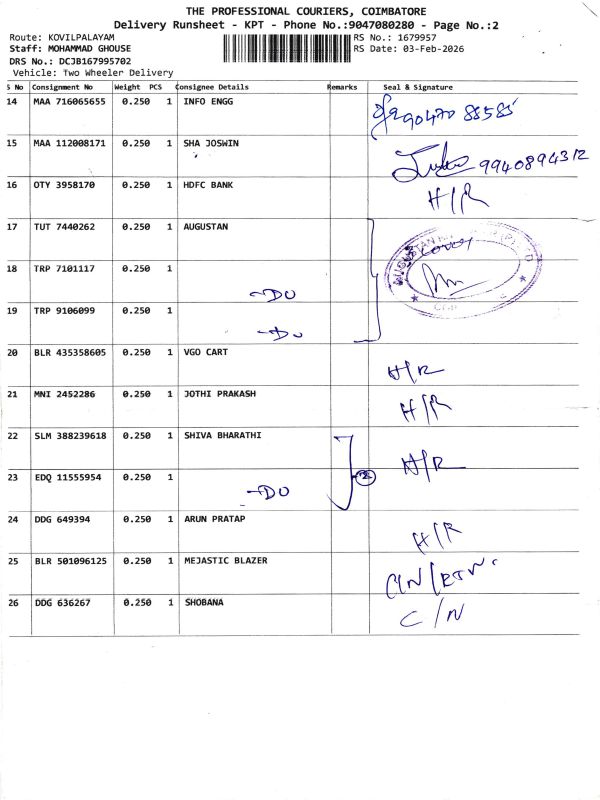 THE PROFESSIONAL COURIERS, COIMBATORE
Delivery Runsheet - KPT - Phone No.:9047080280 - Page No.:2
Route: KOVILPALAYAM RS No.: 1679957
Staff: MOHAMMAD GHOUSE RS Date: 03-Feb-2026
DRS No.: DCJB167995702
Vehicle: Two Wheeler Delivery
S No Consignment No Weight PCS Consignee Details Remarks Seal & Signature
14 MAA 716065655 0.250 1 INFO ENGG 90470 88585
15 MAA 112008171 0.250 1 SHA JOSWIN 9940894312
16 OTY 3958170 0.250 1 HDFC BANK H/R
17 TUT 7440262 0.250 1 AUGUSTAN
18 TRP 7101117 0.250 1 -DO
19 TRP 9106099 0.250 1 -DO
20 BLR 435358605 0.250 1 VGO CART H/R
21 MNI 2452286 0.250 1 JOTHI PRAKASH H/R
22 SLM 388239618 0.250 1 SHIVA BHARATHI H/R
23 EDQ 11555954 0.250 1 -DO 2
24 DDG 649394 0.250 1 ARUN PRATAP H/R
25 BLR 501096125 0.250 1 MEJASTIC BLAZER C/N/RTN.
26 DDG 636267 0.250 1 SHOBANA C/N